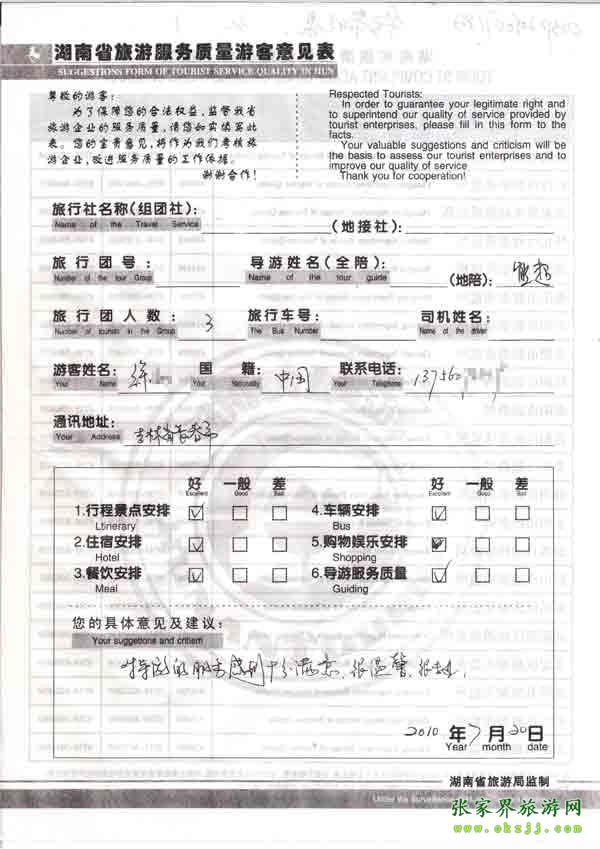 湖南省旅游服务质量游客意见表
SUGGESTIONS FORM OF TOURIST SERVICE QUALITY IN HUN
尊敬的游客：
为了保障您的合法权益，监督我省
旅游企业的服务质量，请您如实填写此
表。您的宝贵意见，将作为我们考核旅
游企业，改进服务质量的工作依据。
谢谢合作！
Respected Tourists:
In order to guarantee your legitimate right and
to superintend our quality of service provided by
tourist enterprises, please fill in this form to the
facts.
Your valuable suggestions and criticism will be
the basis to assess our tourist enterprises and to
improve our quality of service
Thank you for cooperation!
旅行社名称(组团社): (地接社):
Name of the Travel Service
旅行团号: 导游姓名(全陪): (地陪): 熊超
Number of the tour Group Name of the tour guide
旅行团人数: 3 旅行车号: 司机姓名:
Number of tourists in the Group The Bus Number Name of the driver
游客姓名: 国籍: 中国 联系电话: 137560
Your Name Your Nationality Your Telephone
通讯地址: 吉林省长春市
Your Address
好 一般 差 好 一般 差
Excellent Good Bad Excellent Good Bad
1.行程景点安排 4.车辆安排
Ltinerary Bus
2.住宿安排 5.购物娱乐安排
Hotel Shopping
3.餐饮安排 6.导游服务质量
Meal Guiding
您的具体意见及建议:
Your suggetions and critiem
的服务感到十分满意、很温馨、很
2010 年 7 月 20 日
Year month date
湖南省旅游局监制
Under the Surveillance
张家界旅游网
www.okzjj.com